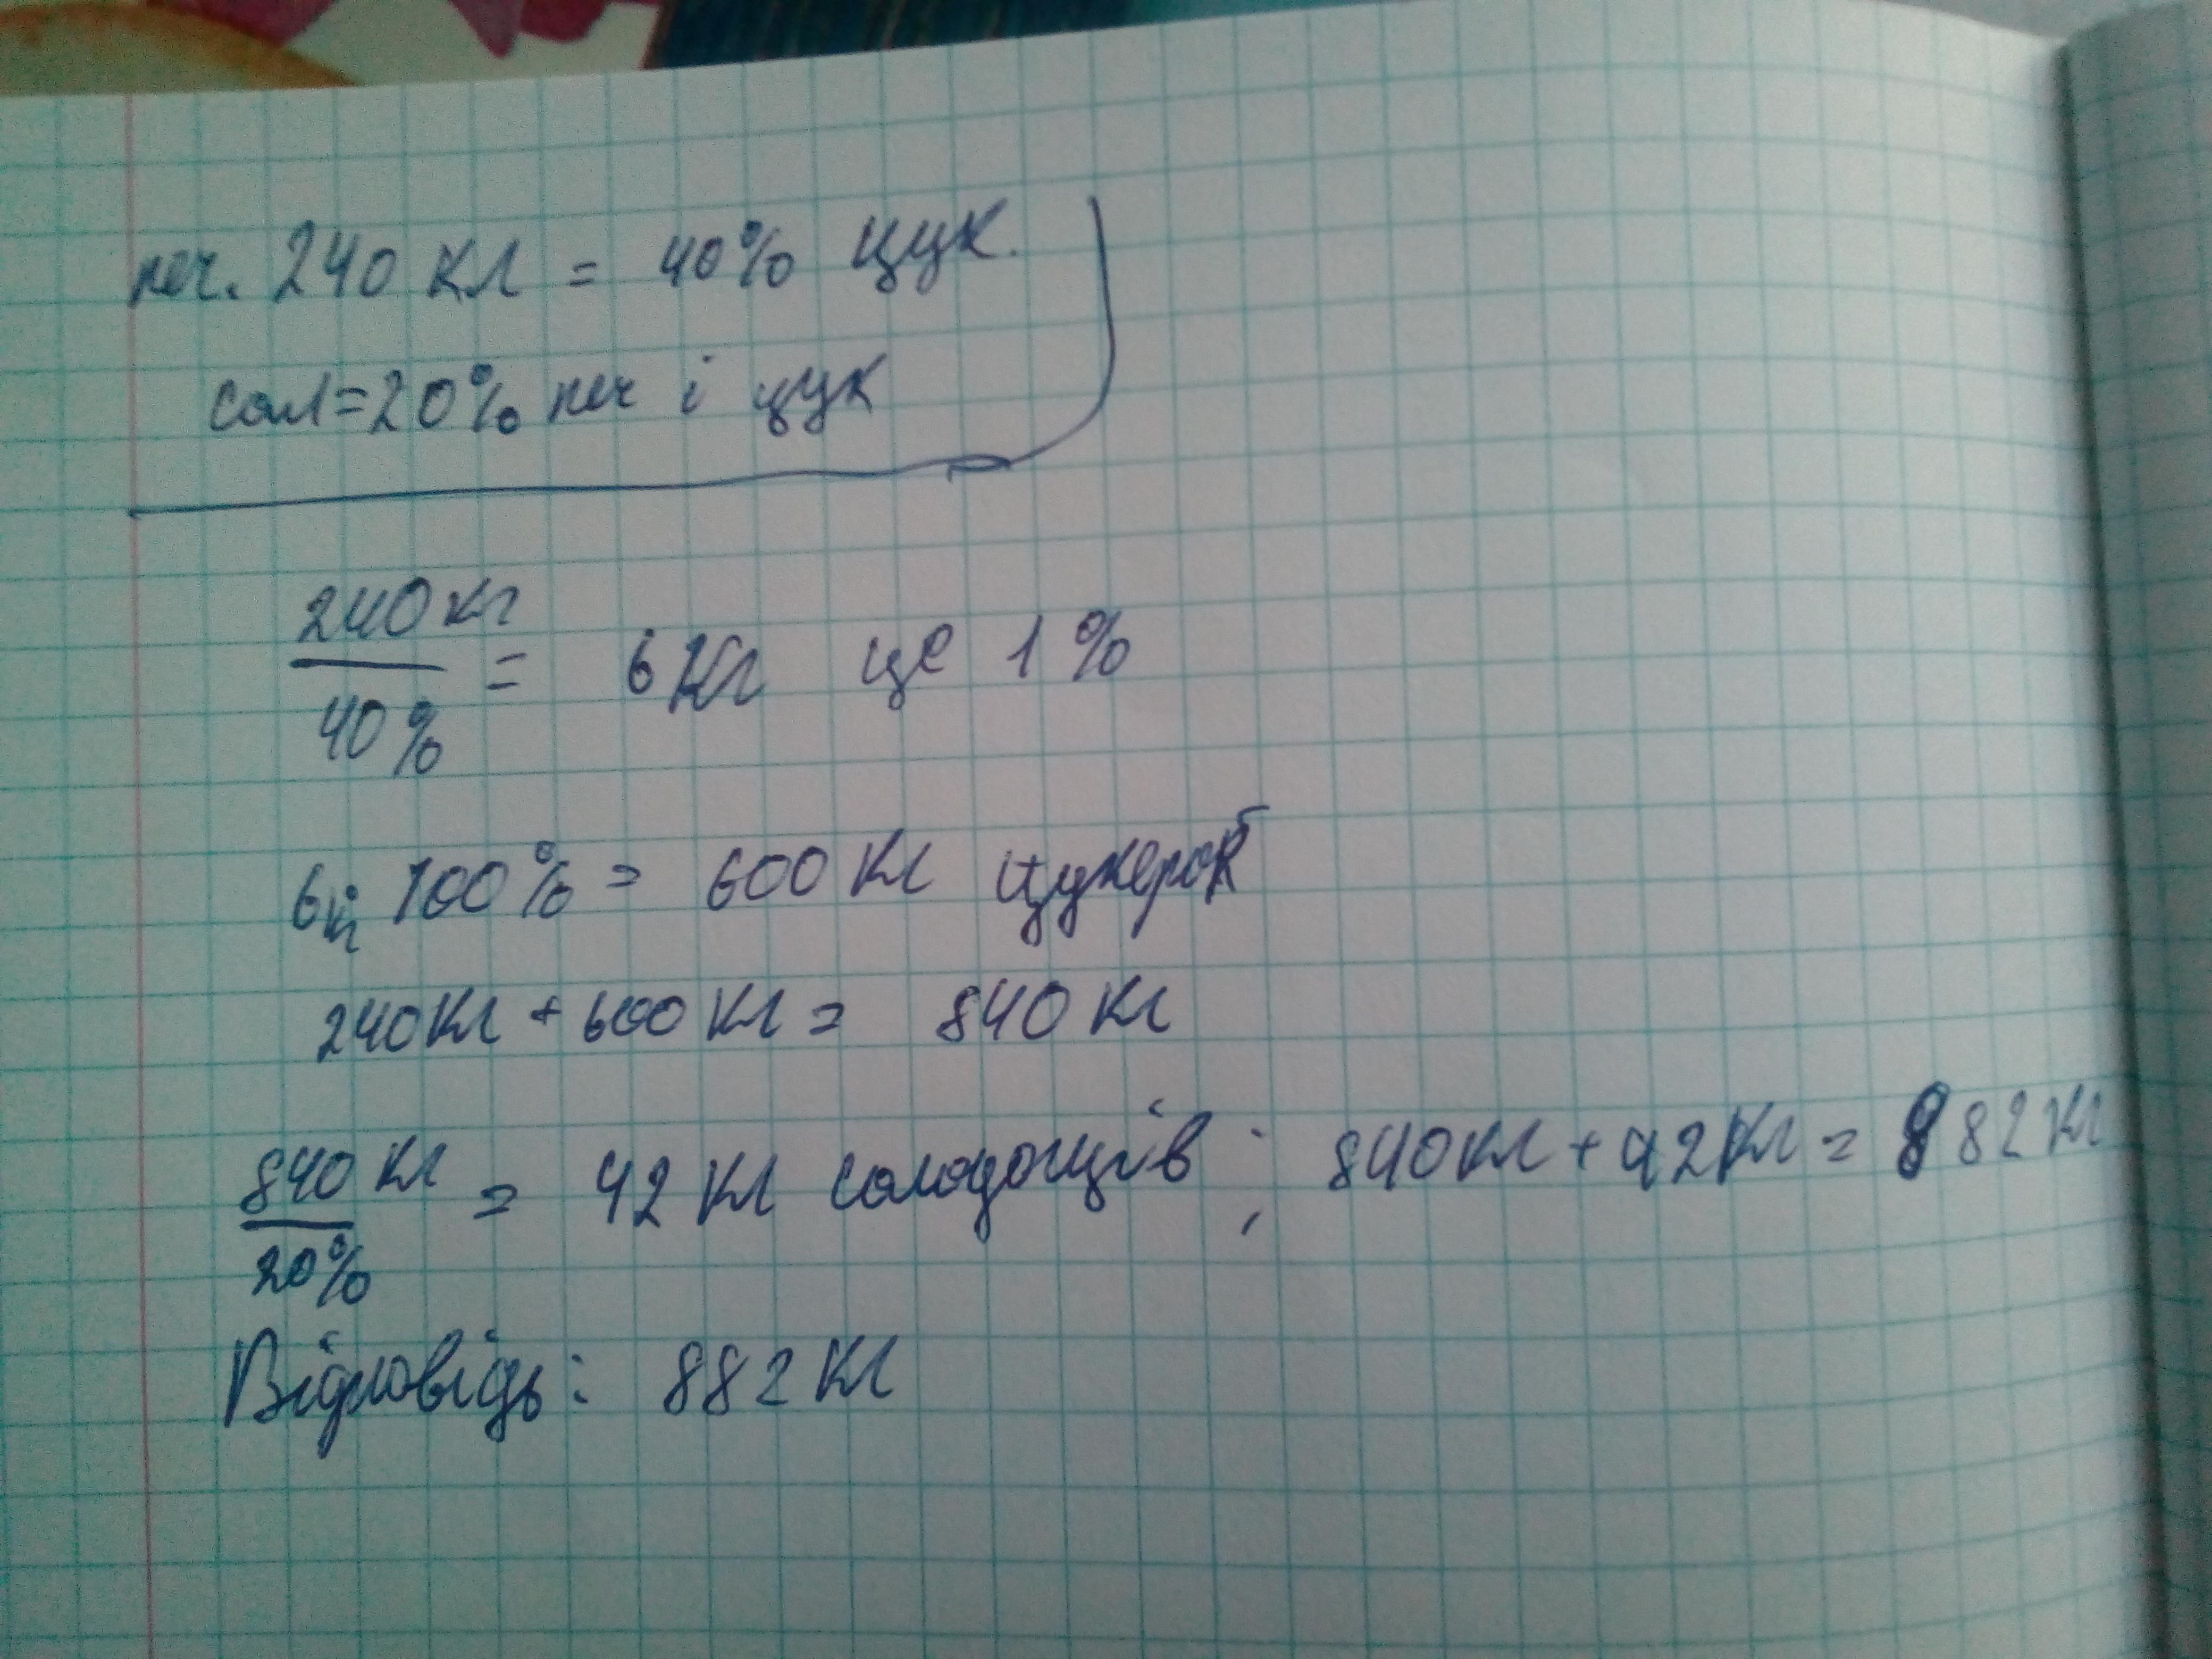 печ. 240 кг = 40% цук.
сол = 20% печ і цук
240 кг
40%
= 6 кг це 1%
6 кг 100% = 600 кг цукерок
240 кг + 600 кг = 840 кг
840 кг
20%
= 42 кг солодощів; 840 кг + 42 кг = 882 кг
Відповідь: 882 кг